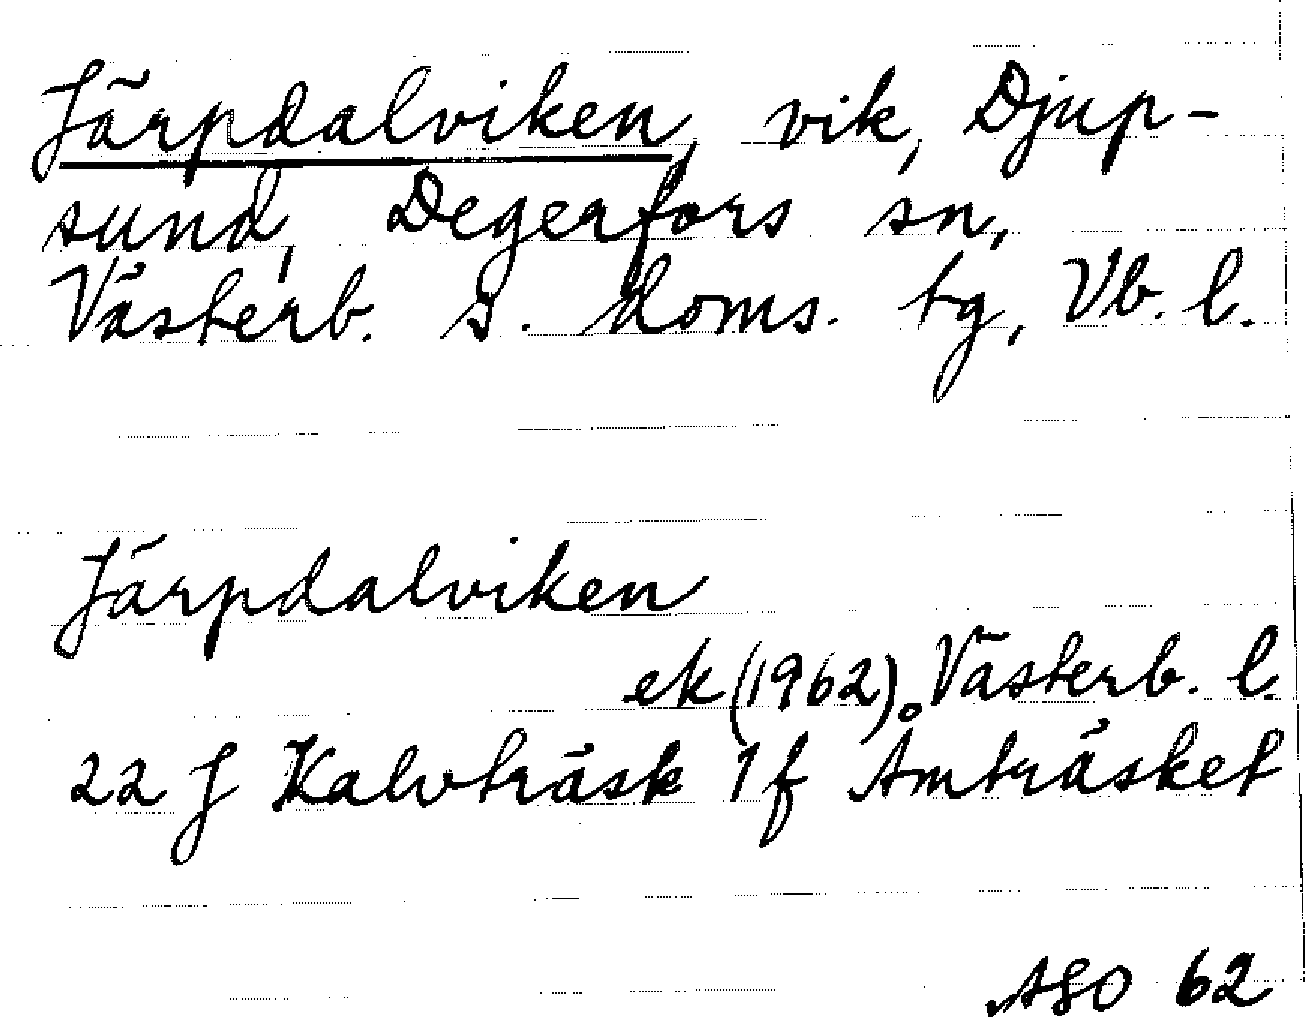 Järpdalviken, vik, Djup-
sund, Degerfors sn,
Västerb. s. doms. tg, Vb. l.
Järpdalviken
ek (1962). Västerb. l.
22 J Kalvträsk 1 f Åmträsket
ASO 62